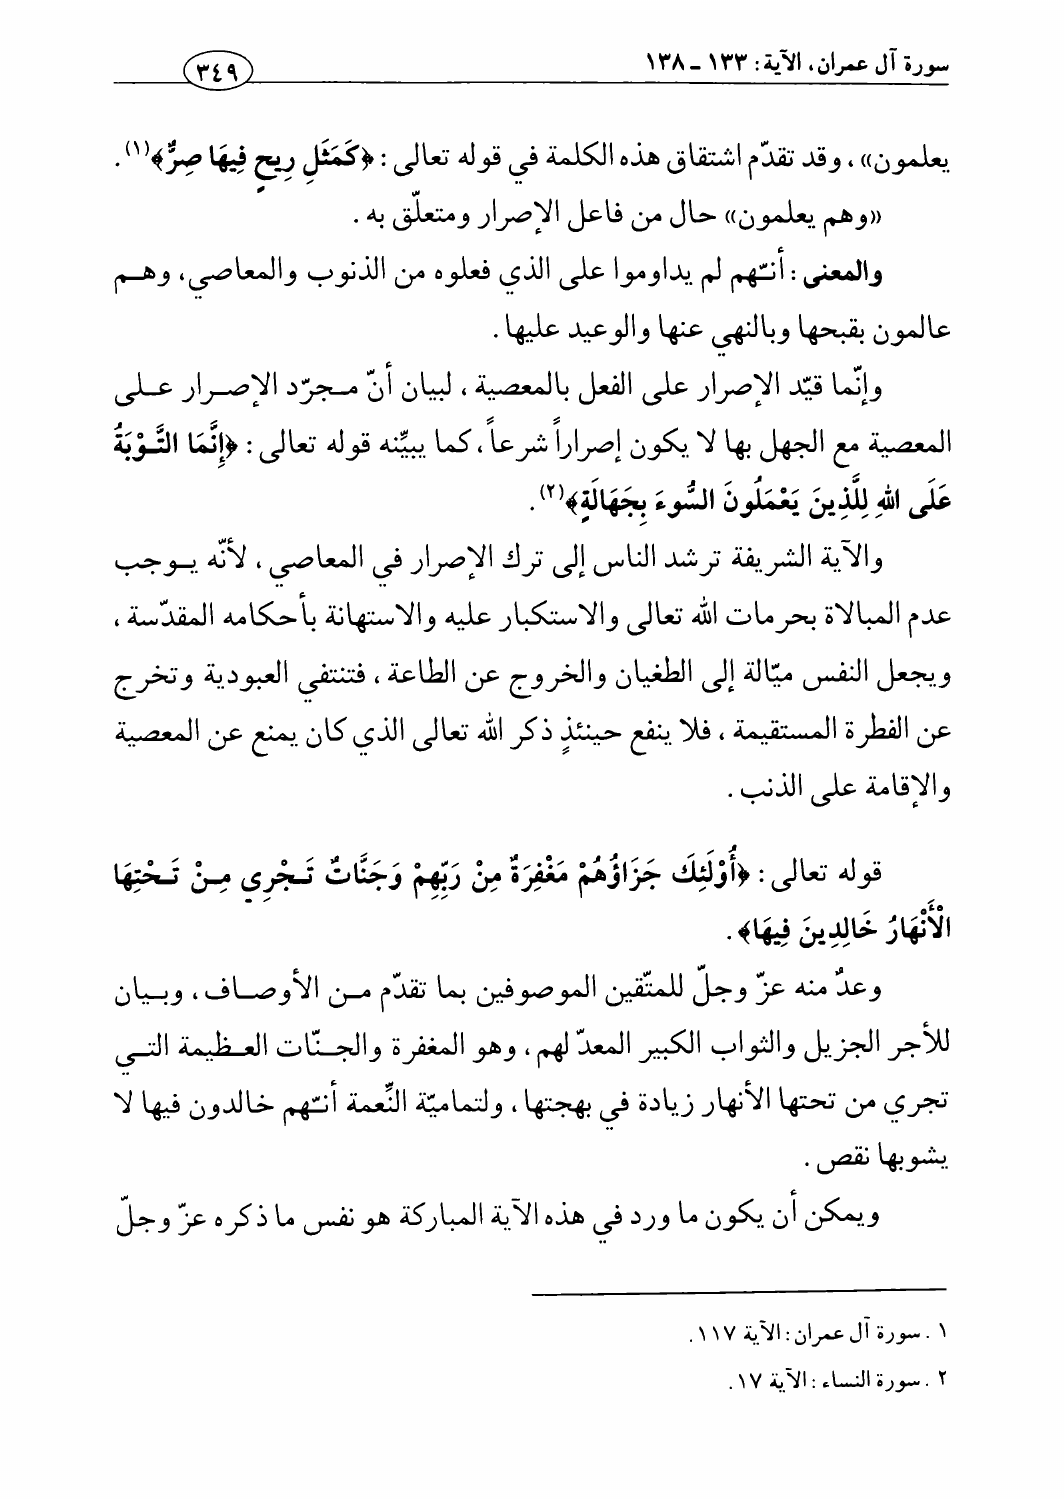 سورة آل عمران، الآية: ١٣٣ ـ ١٣٨
٣٤٩
يعلمون»، وقد تقدّم اشتقاق هذه الكلمة في قوله تعالى: ﴿كَمَثَلِ رِيحٍ فِيهَا صِرٌّ﴾(١).
«وهم يعلمون» حال من فاعل الإصرار ومتعلّق به.
والمعنى: أنّهم لم يداوموا على الذي فعلوه من الذنوب والمعاصي، وهم
عالمون بقبحها وبالنهي عنها والوعيد عليها.
وإنّما قيّد الإصرار على الفعل بالمعصية، لبيان أنّ مجرّد الإصرار على
المعصية مع الجهل بها لا يكون إصراراً شرعاً، كما يبيِّنه قوله تعالى: ﴿إِنَّمَا التَّوْبَةُ
عَلَى اللهِ لِلَّذِينَ يَعْمَلُونَ السُّوءَ بِجَهَالَةٍ﴾(٢).
والآية الشريفة ترشد الناس إلى ترك الإصرار في المعاصي، لأنّه يوجب
عدم المبالاة بحرمات الله تعالى والاستكبار عليه والاستهانة بأحكامه المقدّسة،
ويجعل النفس ميّالة إلى الطغيان والخروج عن الطاعة، فتنتفي العبودية وتخرج
عن الفطرة المستقيمة، فلا ينفع حينئذٍ ذكر الله تعالى الذي كان يمنع عن المعصية
والإقامة على الذنب.
قوله تعالى: ﴿أُوْلَئِكَ جَزَاؤُهُمْ مَغْفِرَةٌ مِنْ رَبِّهِمْ وَجَنَّاتٌ تَجْرِي مِنْ تَحْتِهَا
الْأَنْهَارُ خَالِدِينَ فِيهَا﴾.
وعدٌ منه عزّ وجلّ للمتّقين الموصوفين بما تقدّم من الأوصاف، وبيان
للأجر الجزيل والثواب الكبير المعدّ لهم، وهو المغفرة والجنّات العظيمة التي
تجري من تحتها الأنهار زيادة في بهجتها، ولتماميّة النِّعمة أنّهم خالدون فيها لا
يشوبها نقص.
ويمكن أن يكون ما ورد في هذه الآية المباركة هو نفس ما ذكره عزّ وجلّ
١. سورة آل عمران: الآية ١١٧.
٢. سورة النساء: الآية ١٧.